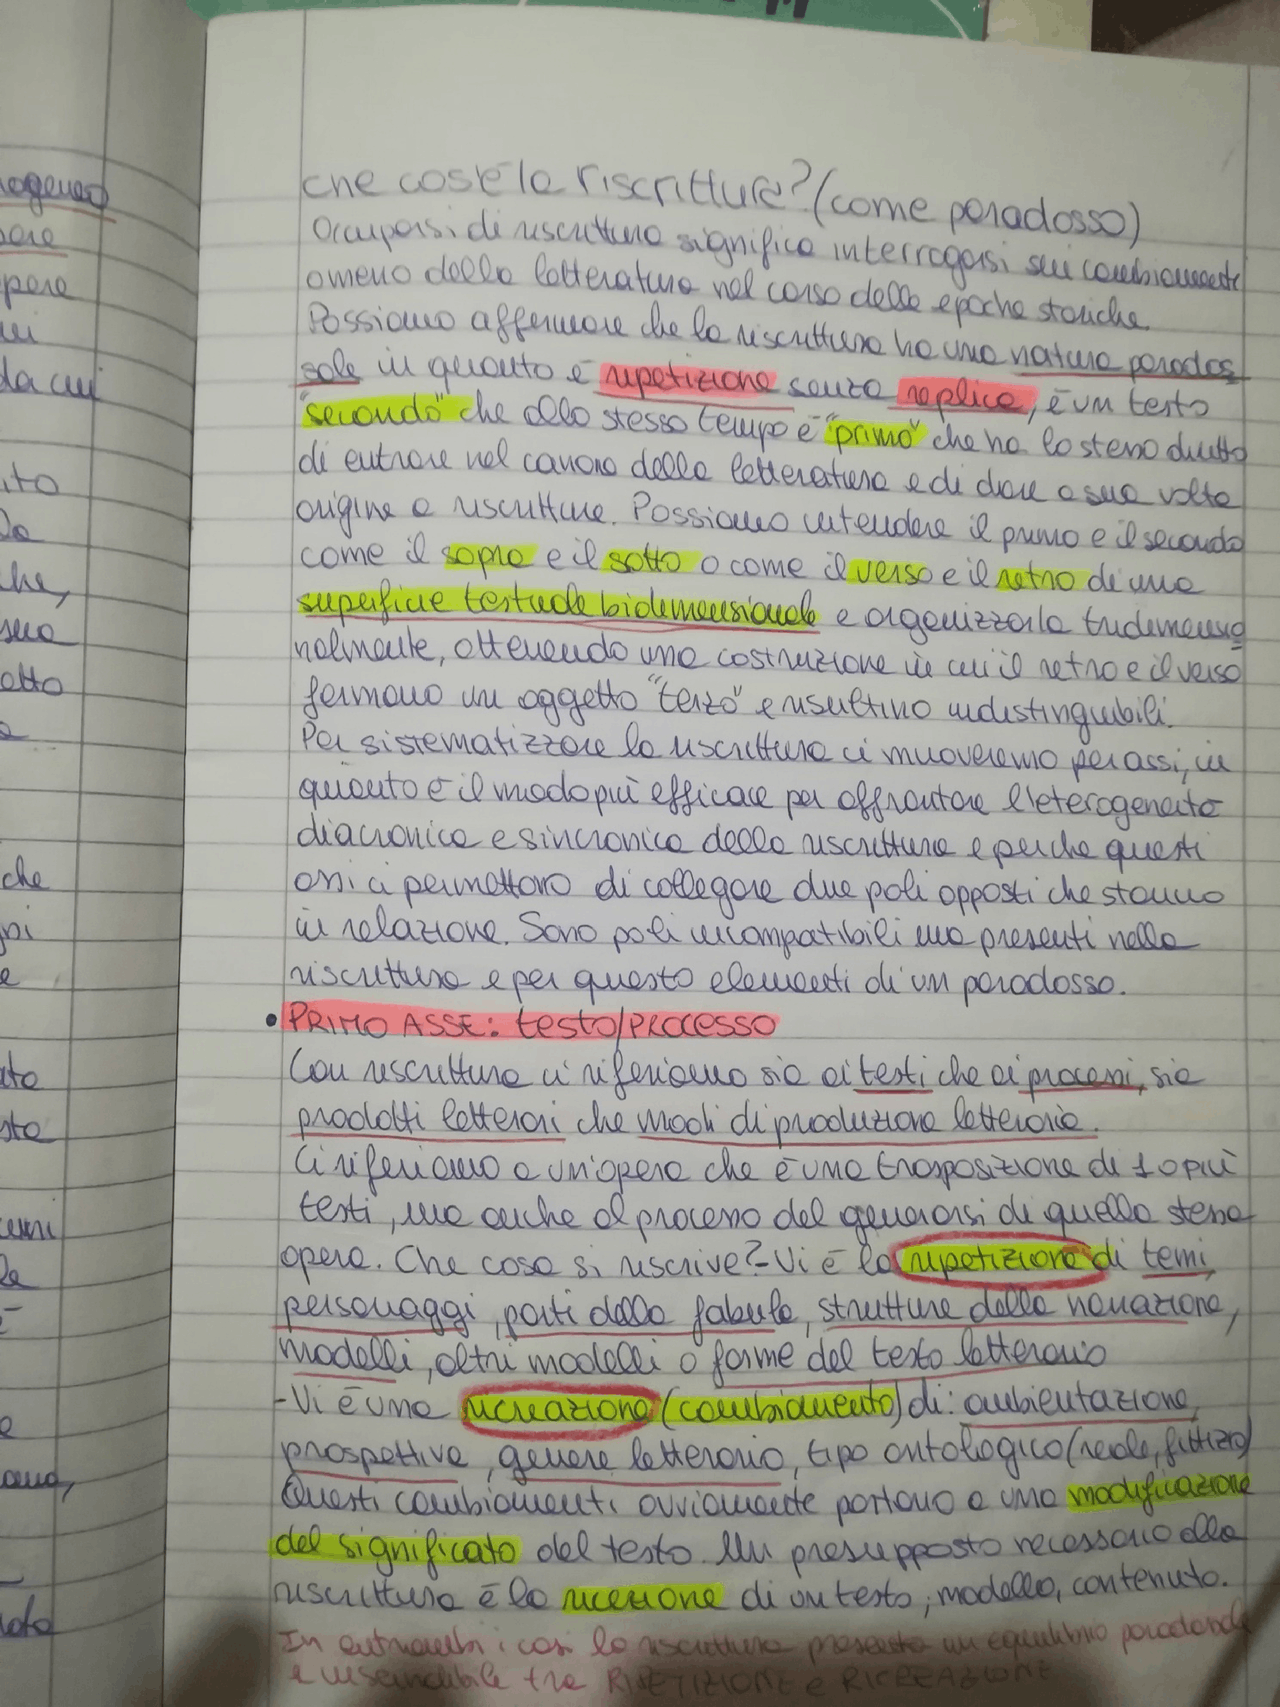 ogeneo
sere
pere
ui
da cui
ito
la
che,
sua
atto
e
che
gni
e
ato
sto
cuni
le
è
e
ana,
che cos'è la riscrittura? (come paradosso)
Occuparsi di riscrittura significa interrogarsi sui cambiamenti
omeno della letteratura nel corso delle epoche storiche.
Possiamo affermare che la riscrittura ha una natura parados
sale in quanto è ripetizione senza replica, è un testo
"secondo" che allo stesso tempo è "primo" che ha lo stesso diritto
di entrare nel canone della letteratura e di dare a sua volta
origine a riscritture. Possiamo intendere il primo e il secondo
come il sopra e il sotto o come il verso e il retro di una
superficie testuale bidimensionale e organizzarla tridimensio
nalmente, ottenendo una costruzione in cui il retro e il verso
formano un oggetto "terzo" e risultino indistinguibili.
Per sistematizzare la riscrittura ci muoveremo per assi, in
quanto è il modo più efficace per affrontare l'eterogeneità
diacronica e sincronica della riscrittura e perché questi
assi ci permettono di collegare due poli opposti che stanno
in relazione. Sono poli incompatibili ma presenti nella
riscrittura e per questo elementi di un paradosso.
• PRIMO ASSE: testo/PROCESSO
Con riscrittura ci riferiamo sia ai testi che ai processi, sia
prodotti letterari che modi di produzione letteraria.
Ci riferiamo a un'opera che è una trasposizione di 1 o più
testi, ma anche al processo del generarsi di quella stessa
opera. Che cosa si riscrive? - Vi è la ripetizione di temi,
personaggi, parti della fabula, strutture della narrazione,
modelli, altri modelli o forme del testo letterario
- Vi è una ricreazione (cambiamento) di: ambientazione,
prospettiva, genere letterario, tipo ontologico (reale, fittizio)
Questi cambiamenti ovviamente portano a una modificazione
del significato del testo. Un presupposto necessario alla
riscrittura è la ricezione di un testo, modello, contenuto.
In entrambi i casi la riscrittura presenta un equilibrio paradossale
e inscindibile tra RIPETIZIONE e RICREAZIONE